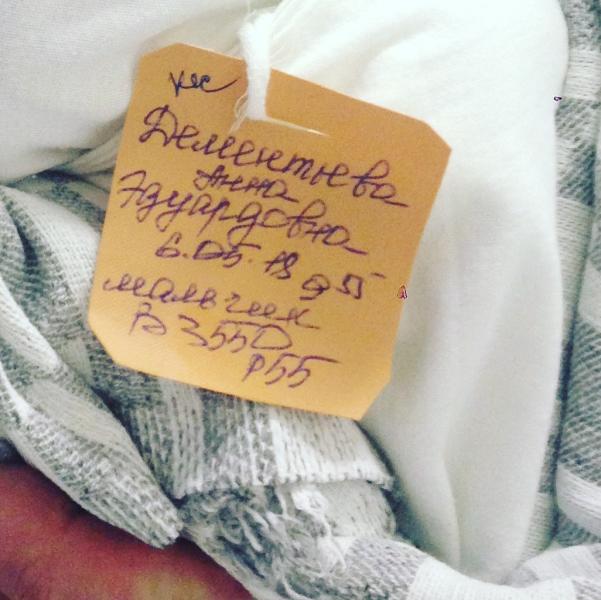 кес
Дементьева
Анна
Эдуардовна
6.05.18 9 55
мальчик
В 3550
р 55